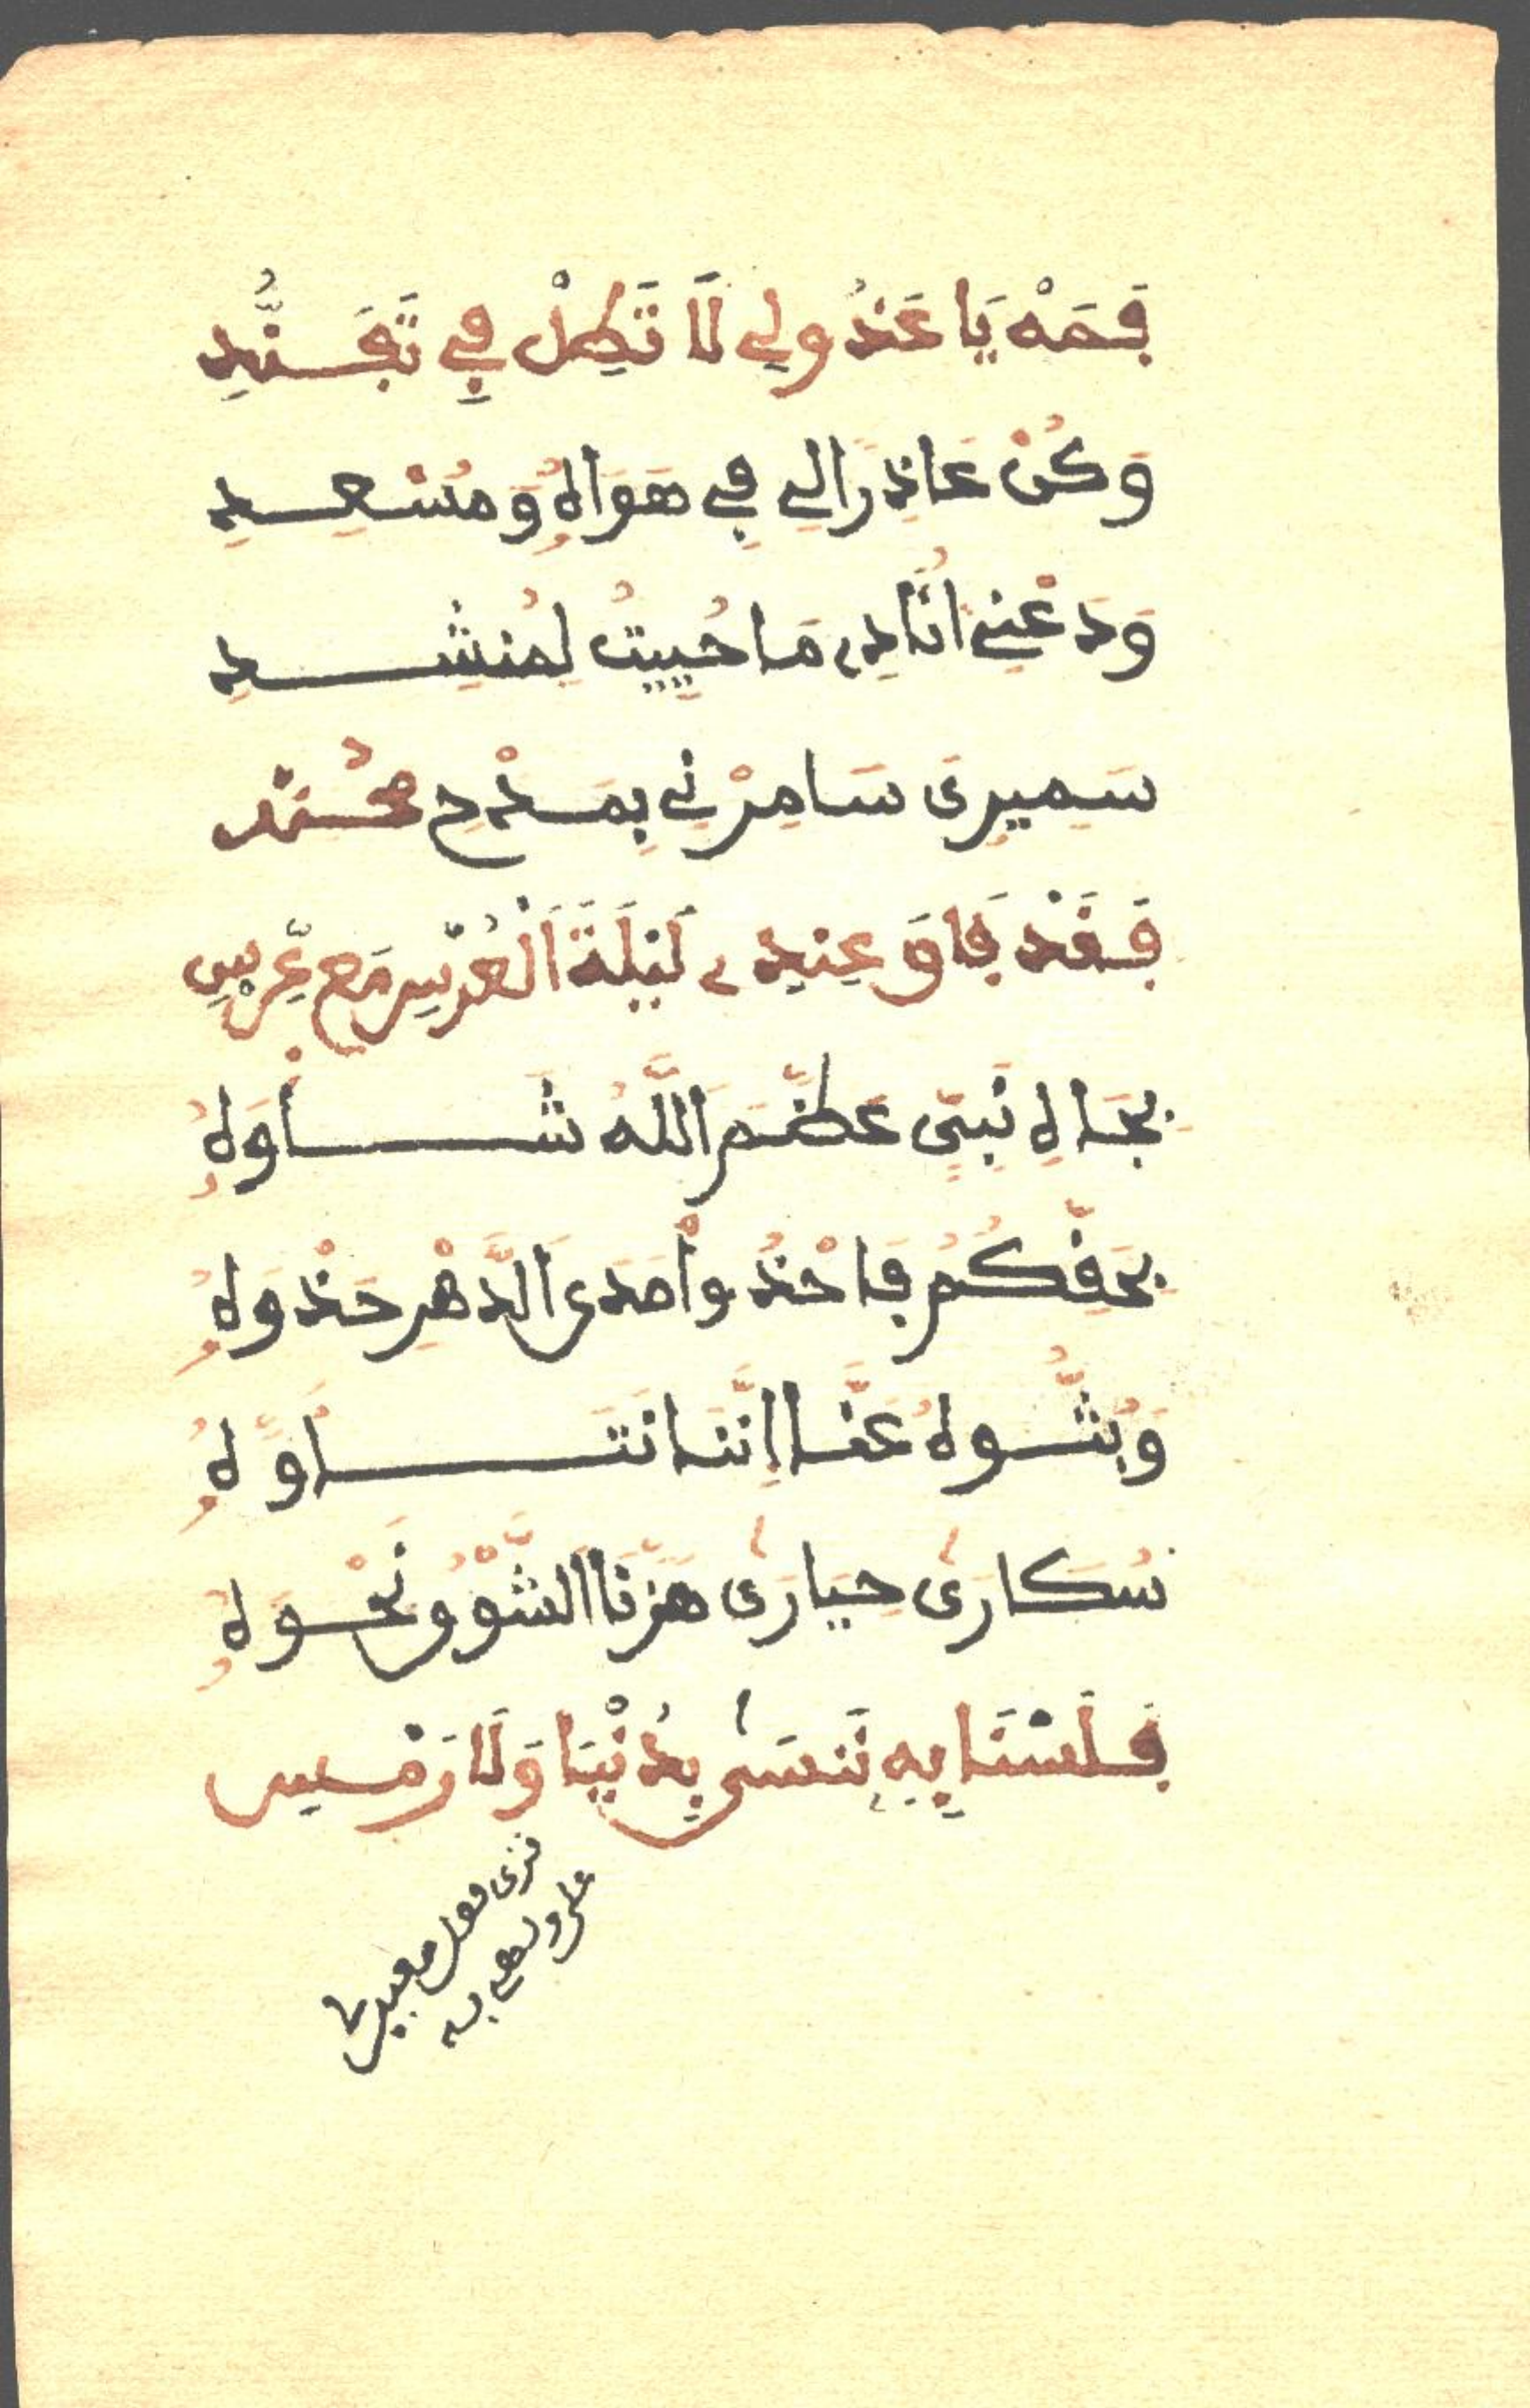 فَمَهْ يَا عَذُولِي لَا تَطِلْ فِي تَفَنُّدِ
وَكُنْ عَاذِرًا لِي فِي هَوَاهُ وَمُسْعِدِ
وَدَعْنِي أُنَادِي مَا حُيِيتُ لِمُنْشِدِ
سَمِيرِى سَامِرْنِي بِمَدْحِ مُحَمَّد
فَقَدْ فَاقَ عِنْدِي لَيْلَةَ الْعُرْسِ مَعْ عِرْسِ
بِجَاهِ نَبِيٍّ عَظَّمَ اللَّهُ شَأْوَهُ
بِحَقِّكُمُ فَاحْذُوا مَدَى الدَّهْرِ حَذْوَهُ
وَبُثُّوهُ عَنَّا إِنَّنَا نَتَأَوَّهُ
سُكَارَى حَيَارَى هَزَّنَا الشَّوْقُ نَحْوَهُ
فَلَسْنَا بِهِ نَنْسَى بِدُنْيَا وَلَا رَمْسِ